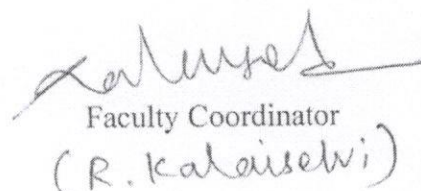 Faculty Coordinator
(R. Kalaiselvi)